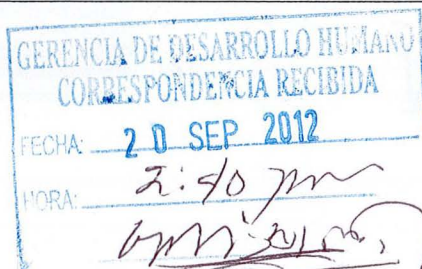 GERENCIA DE DESARROLLO HUMANO
CORRESPONDENCIA RECIBIDA
FECHA: 20 SEP 2012
HORA: 2:40 pm